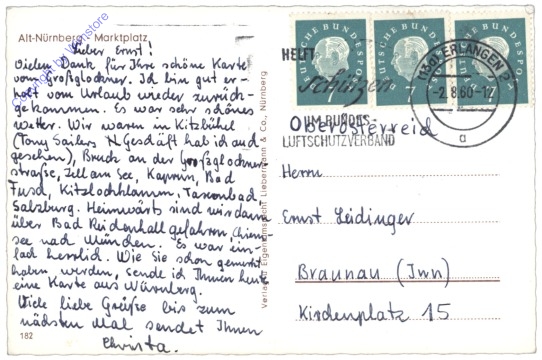 Alt-Nürnberg, Marktplatz
Lieber Ernst!
Vielen Dank für Ihre schöne Karte
vom Großglockner. Ich bin gut er-
holt vom Urlaub wieder zurück-
gekommen. Es war sehr schönes
Wetter. Wir waren in Kitzbühel
(Tony Sailers N. Geschäft hab ich auch
gesehen), Bruck an der Großglockner-
straße, Zell am See, Kaprun, Bad
Fusch, Kitzlochklamm,
Salzburg. Heimwärts sind wir dann
über Bad Reichenhall gefahren, Chiem-
see nach München. Es war ein-
fach herrlich. Wie Sie schon gemerkt
haben werden, sende ich Ihnen heute
eine Karte aus Nürnberg.
Viele liebe Grüße bis zum
nächsten Mal sendet Ihnen
Christa.
182
Verlag für Eigenheimsicht Liebermann & Co., Nürnberg
DEUTSCHE BUNDESPOST
7
DEUTSCHE BUNDESPOST
7
DEUTSCHE BUNDESPOST
7
ERLANGEN 2
-2.8.60-12
a
HELFT
schützen
IM BUNDES-
LUFTSCHUTZVERBAND
Oberösterreich
Herrn
Ernst Leidinger
Braunau (Inn)
Kirchenplatz 15